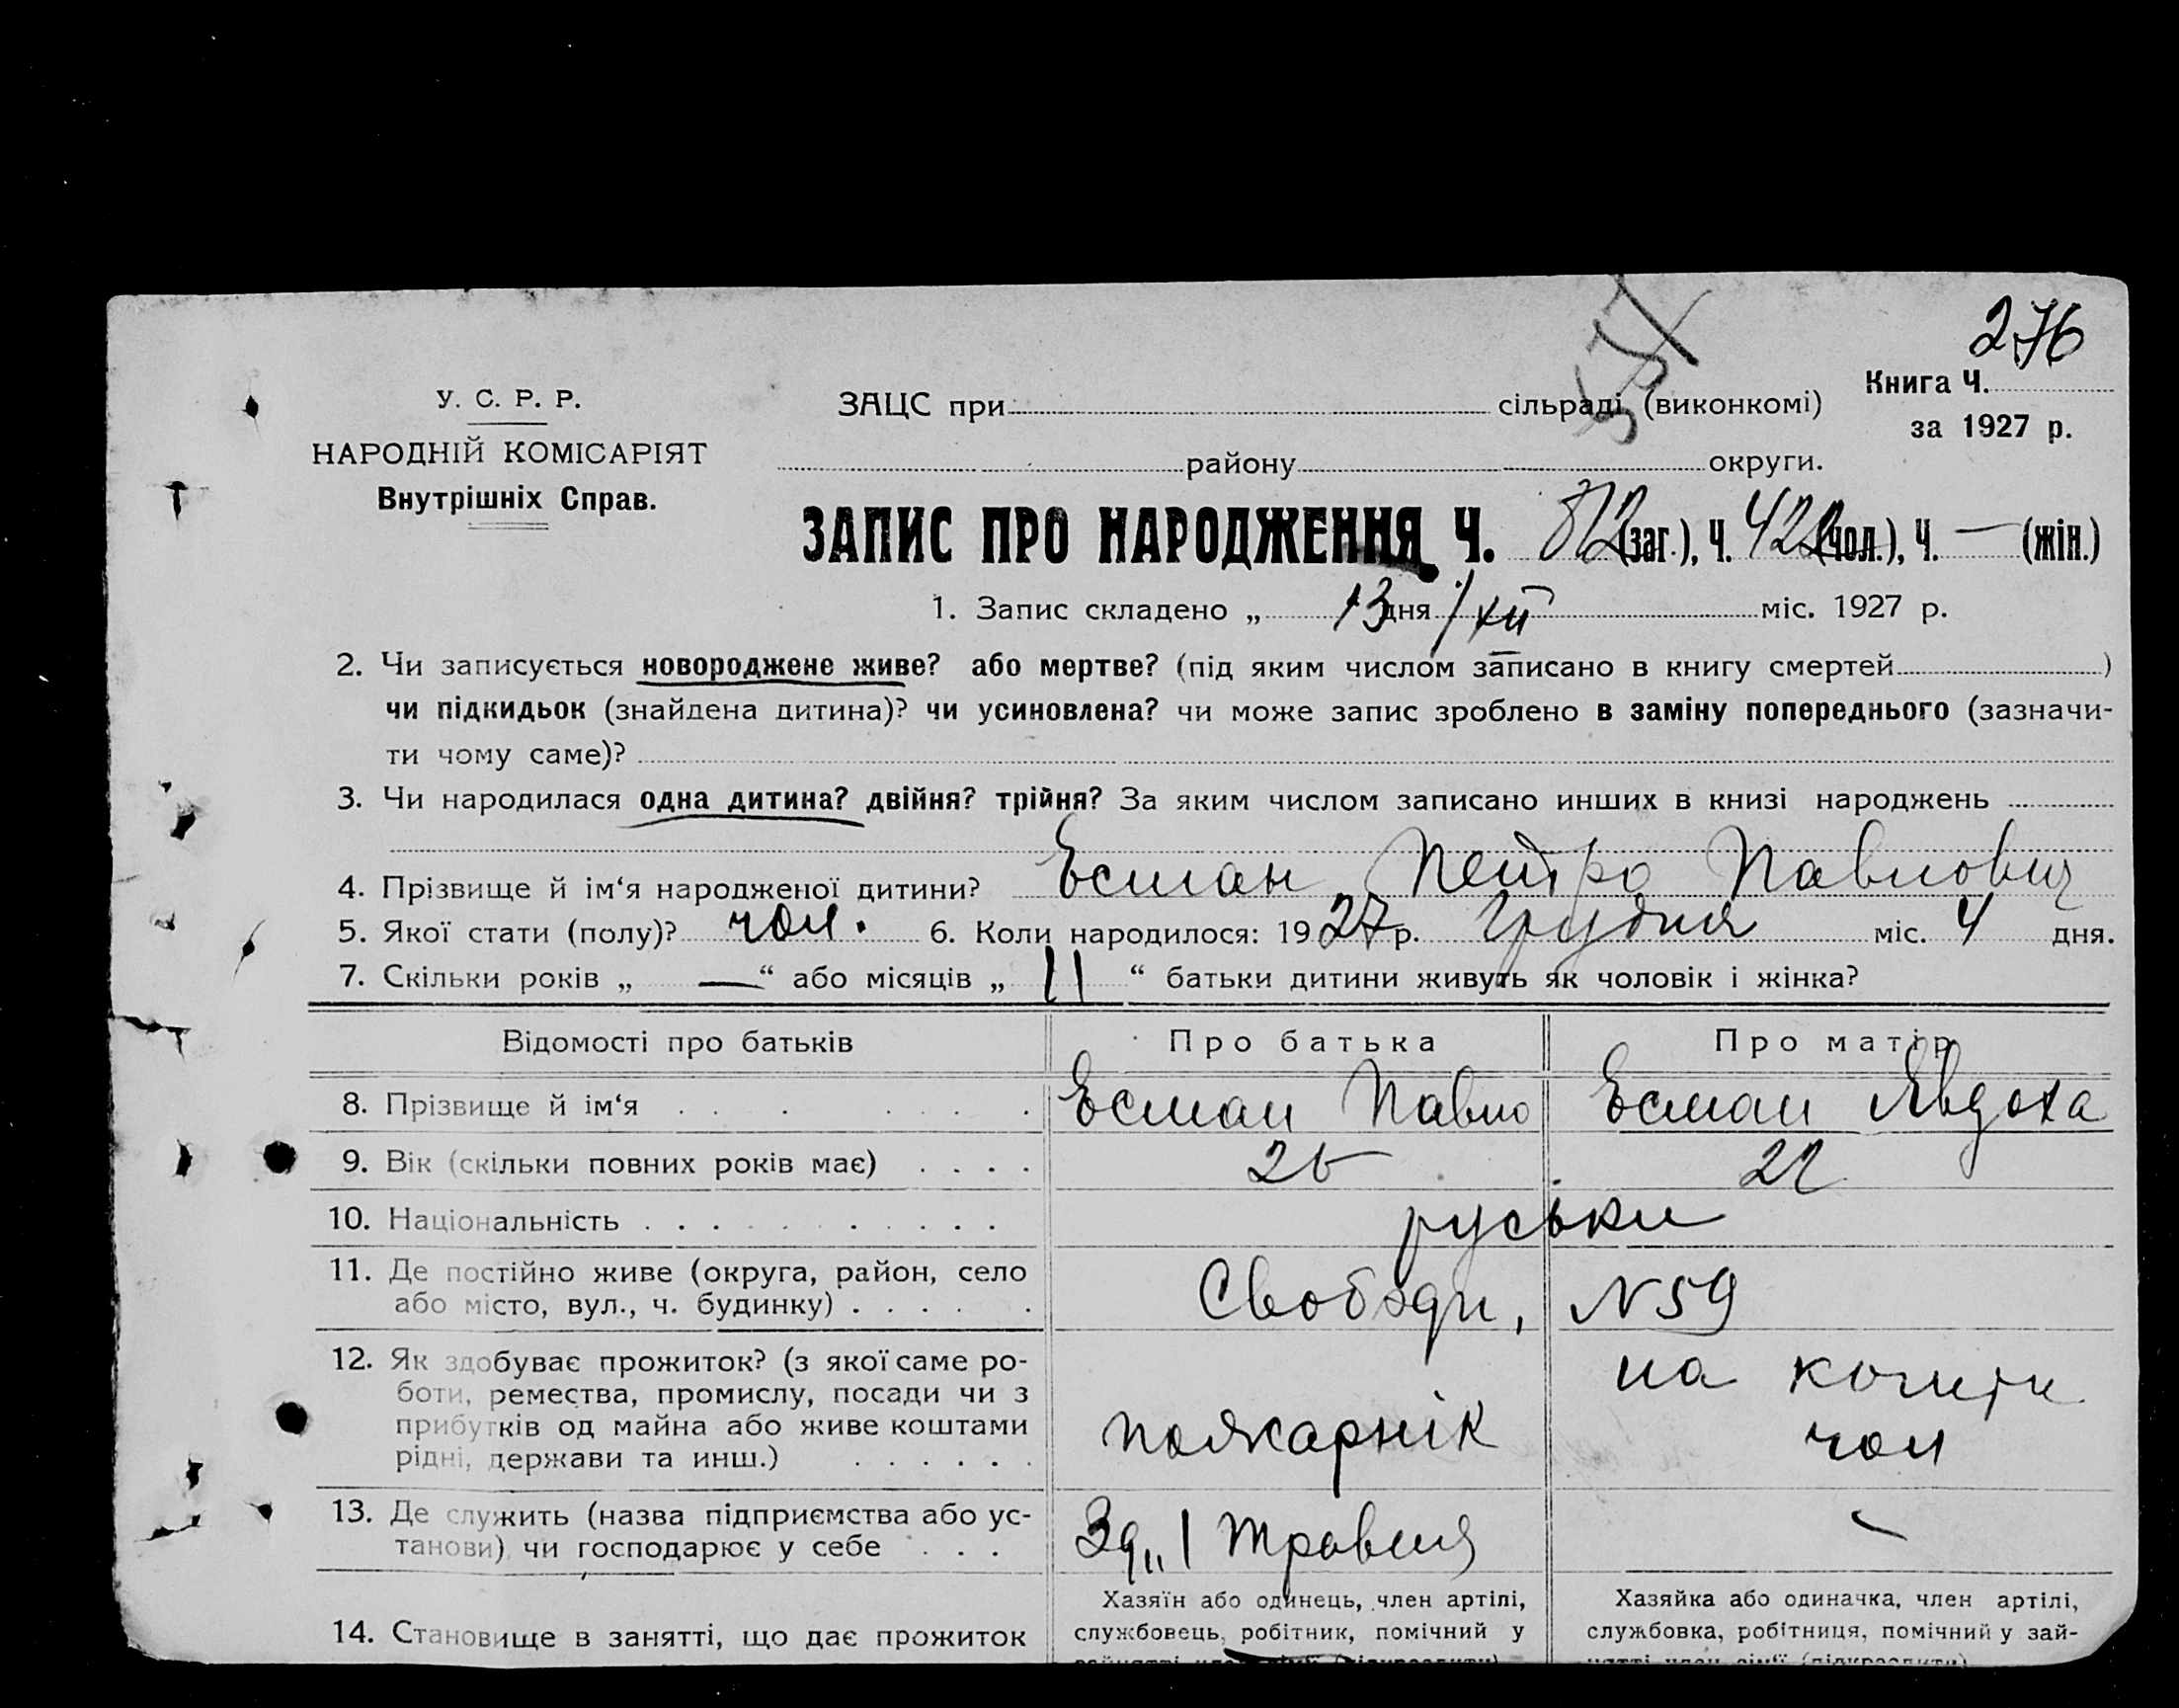 276
У. С. Р. Р.
НАРОДНІЙ КОМІСАРІЯТ
Внутрішніх Справ.
ЗАЦС при сільраді (виконкомі)
Книга Ч.
за 1927 р.
району округи.
ЗАПИС ПРО НАРОДЖЕННЯ Ч. 812 (заг.), Ч. 422 (чол.), Ч. — (жін.)
1. Запис складено „ 13 дня /XII міс. 1927 р.
2. Чи записується новороджене живе? або мертве? (під яким числом записано в книгу смертей )
чи підкидьок (знайдена дитина)? чи усиновлена? чи може запис зроблено в заміну попереднього (зазначи-
ти чому саме)?
3. Чи народилася одна дитина? двійня? трійня? За яким числом записано инших в книзі народжень
4. Прізвище й ім‘я народженої дитини? Есман Петро Павлович
5. Якої стати (полу)? чол. 6. Коли народилося: 1927 р. Грудня міс. 4 дня.
7. Скільки років „ — “ або місяців „ 11 “ батьки дитини живуть як чоловік і жінка?
Відомості про батьків Про батька Про матір
8. Прізвище й ім‘я . . . . . . . Есман Павло Есман Явдоха
9. Вік (скільки повних років має) . . . . 25 22
10. Національність . . . . . . . . . . . руськи
11. Де постійно живе (округа, район, село
або місто, вул., ч. будинку) . . . . . . Свободи, N 59
12. Як здобуває прожиток? (з якої саме ро-
боти, ремества, промислу, посади чи з
прибутків од майна або живе коштами
рідні, держави та инш.) . . . . . .
пожарнік
на кошти
чол
13. Де служить (назва підприємства або ус-
танови) чи господарює у себе . . .
Зд „1 Травня
—
14. Становище в занятті, що дає прожиток
Хазяїн або одинець, член артілі,
службовець, робітник, помічний у
Хазяйка або одиначка, член артілі,
службовка, робітниця, помічний у зай-